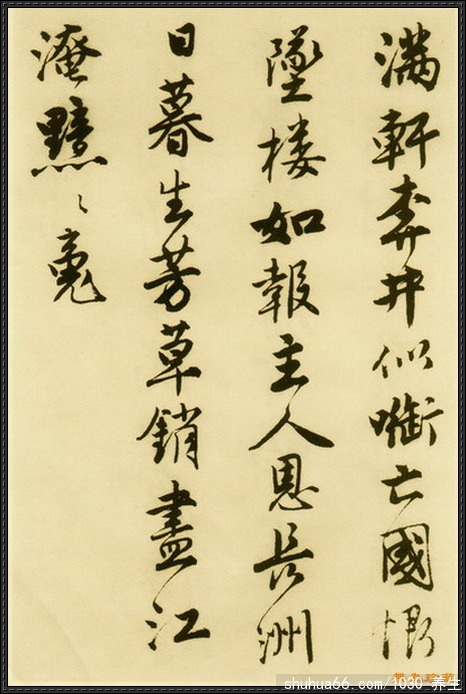 满軒奔井似啣亡國恨
墜楼如報主人恩長洲
日暮生芳草銷盡江
淹黯〻䰟
shuhua66.com/1030_养生